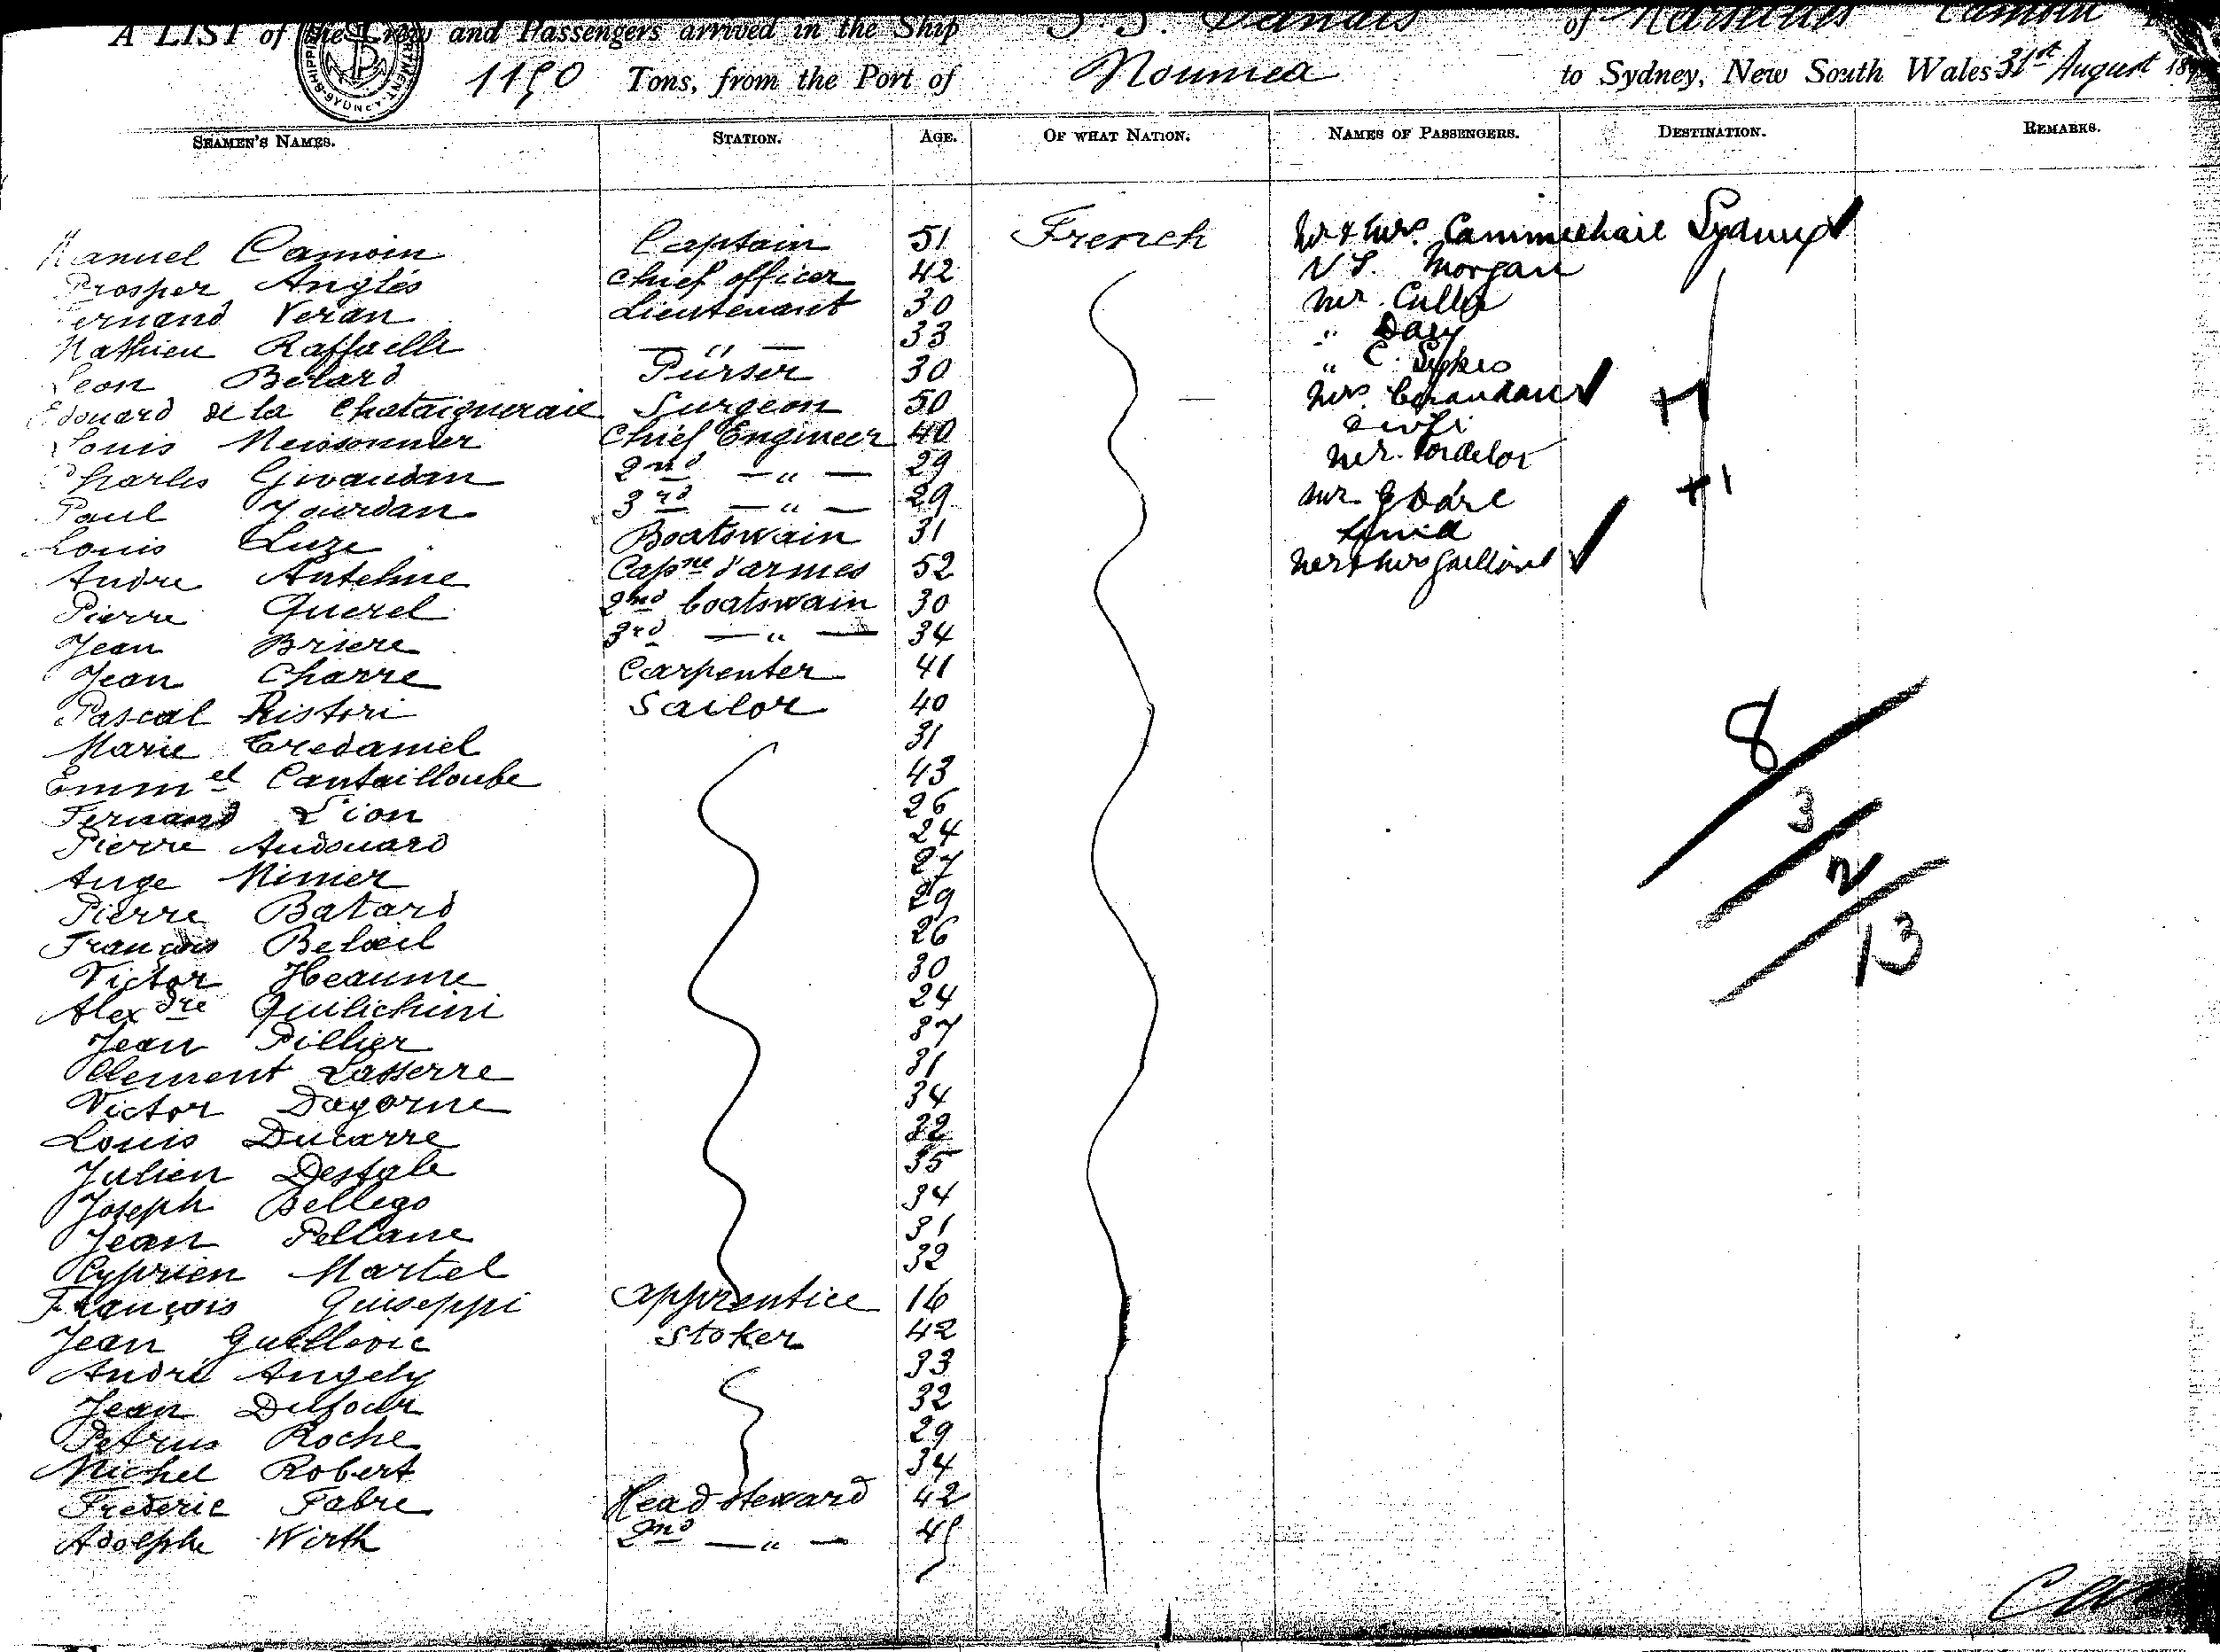 A LIST of the Crew and Passengers arrived in the Ship S. S. of Marseilles Camoin
1190 Tons, from the Port of Noumea to Sydney, New South Wales 31st August 18
SEAMEN'S NAMES. STATION. AGE. OF WHAT NATION. NAMES OF PASSENGERS. DESTINATION. REMARKS.
Camoin Captain 51 French Mr & Mrs Sydney
Prosper Anglès Chief officer 42 Morgan
Fernand Veran Lieutenant 30 Mr.
Mathieu Raffaelli — " — 33 " Day
Leon Berard Purser 30 " C. Sykes
Edouard de la Chataigneraie Surgeon 50 Mrs. +1
Louis Meissonnier Chief Engineer 40
Charles Givaudan 2nd — " — 29 Mr.
Paul Jourdan 3rd — " — 29 Mr +1
Louis Luze Boatswain 31
Andre Antelme Capne d'armes 52 Mr & Mrs
Pierre Querel 2nd boatswain 30
Jean Briere 3rd — " — 34
Jean Charre Carpenter 41
Pascal Ristori Sailor 40
Marie Credaniel 31
Emmel Cantailloube 43
Fernand Lion 26
Pierre Audouard 24
Ange Minier 27
Pierre Batard 29
François Beloeil 26
Victor Heaume 30
Alexdre Quilichini 24
Jean Pillier 37
Clement Lasserre 31
Victor Dagorne 34
Louis Ducarre 32
Julien 35
Joseph Bellego 34
Jean Pellane 31
Cyprien Martel 32
François Guiseppi apprentice 16
Jean Guillovic Stoker 42
André Angely 33
Jean Dufour 32
Petrus Roche 29
Michel Robert 34
Frederic Fabre Head Steward 42
Adolphe Wirth 2nd — " —
8
3
2
13